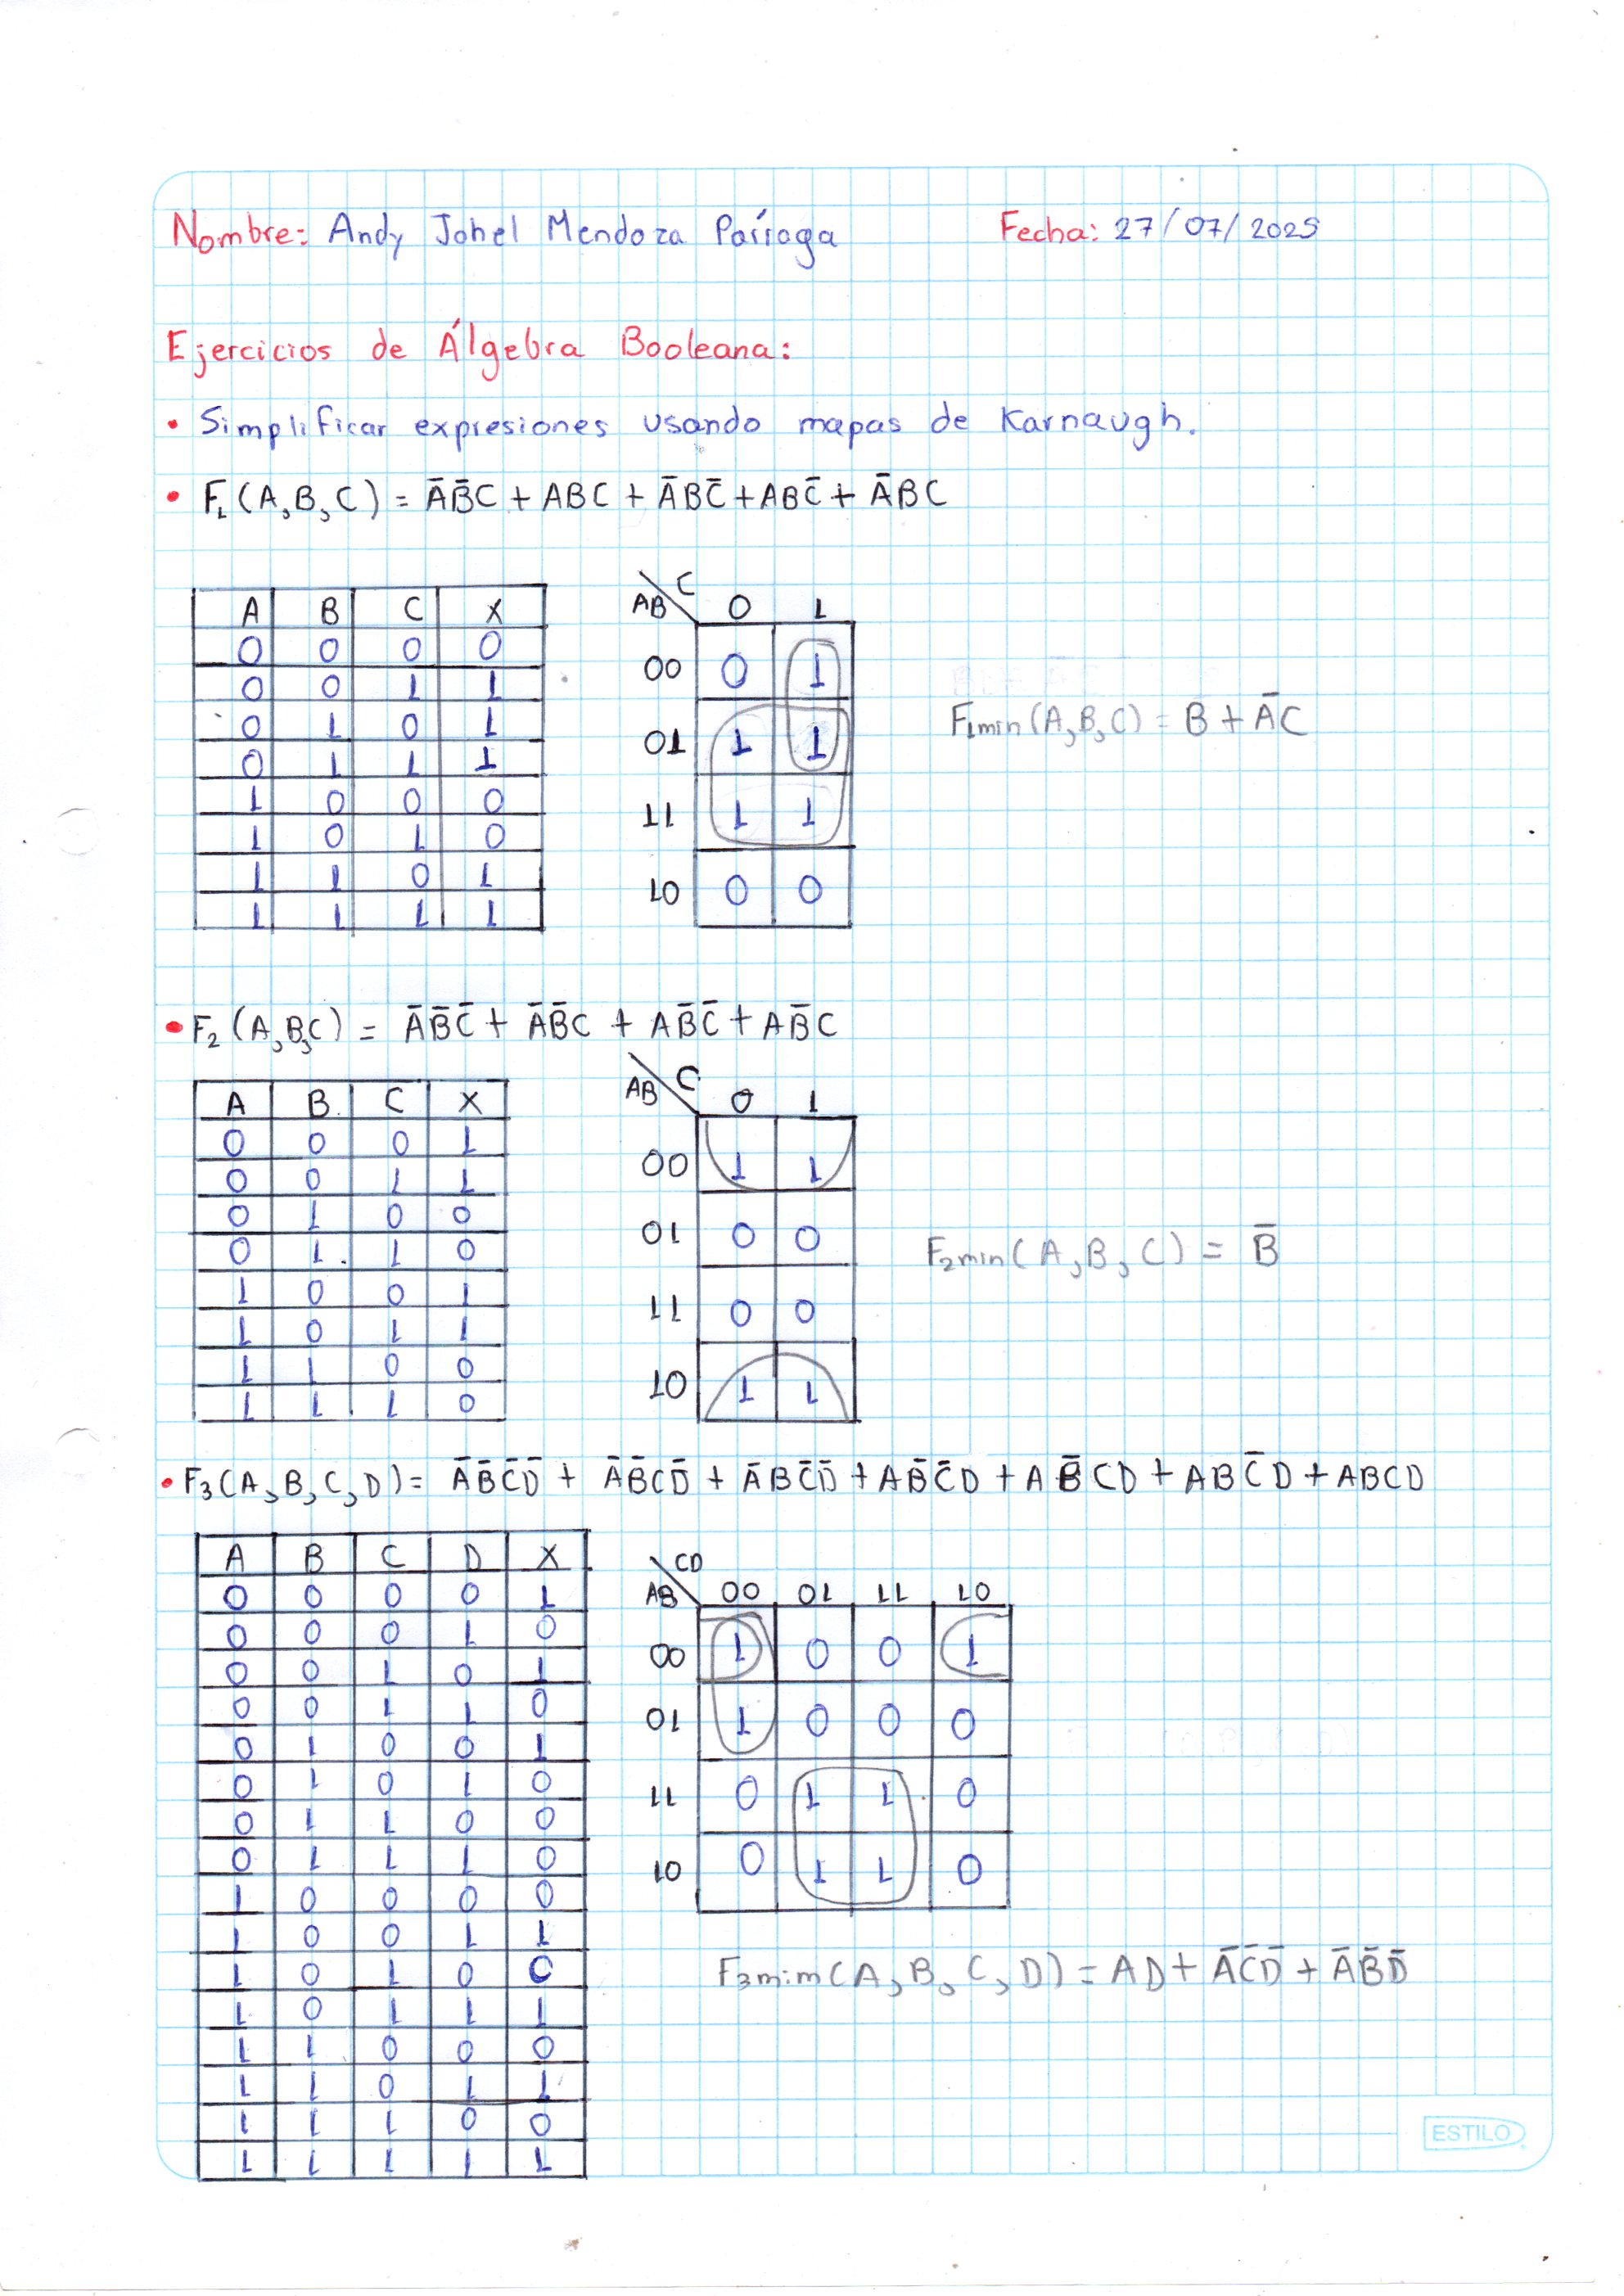 Nombre: Andy Johel Mendoza Párraga Fecha: 27/07/2025
Ejercicios de Álgebra Booleana:
• Simplificar expresiones usando mapas de Karnaugh.
• F₁(A,B,C) = A̅B̅C + ABC + A̅BC̅ + ABC̅ + A̅BC
A B C X
0 0 0 0
0 0 1 1
0 1 0 1
0 1 1 1
1 0 0 0
1 0 1 0
1 1 0 1
1 1 1 1
AB\C 0 1
00 0 1
01 1 1
11 1 1
10 0 0
F₁min(A,B,C) = B + A̅C
• F₂(A,B,C) = A̅B̅C̅ + A̅B̅C + AB̅C̅ + AB̅C
A B C X
0 0 0 1
0 0 1 1
0 1 0 0
0 1 1 0
1 0 0 1
1 0 1 1
1 1 0 0
1 1 1 0
AB\C 0 1
00 1 1
01 0 0
11 0 0
10 1 1
F₂min(A,B,C) = B̅
• F₃(A,B,C,D) = A̅B̅C̅D̅ + A̅B̅CD̅ + A̅BC̅D̅ + AB̅C̅D + AB̅CD + ABC̅D + ABCD
A B C D X
0 0 0 0 1
0 0 0 1 0
0 0 1 0 1
0 0 1 1 0
0 1 0 0 1
0 1 0 1 0
0 1 1 0 0
0 1 1 1 0
1 0 0 0 0
1 0 0 1 1
1 0 1 0 0
1 0 1 1 1
1 1 0 0 0
1 1 0 1 1
1 1 1 0 0
1 1 1 1 1
AB\CD 00 01 11 10
00 1 0 0 1
01 1 0 0 0
11 0 1 1 0
10 0 1 1 0
F₃mim(A,B,C,D) = AD + A̅C̅D̅ + A̅B̅D̅
ESTILO